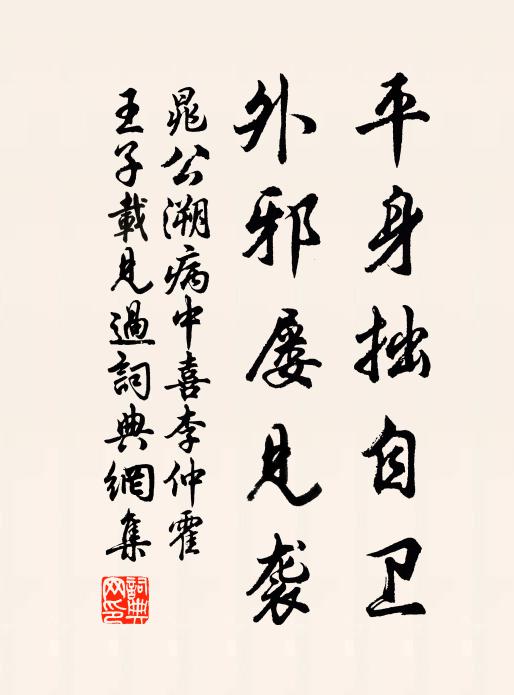 平身拙自卫
外邪屡见袭
晁公溯病中喜李仲霍
王子載見過詞典網集
詞典网印